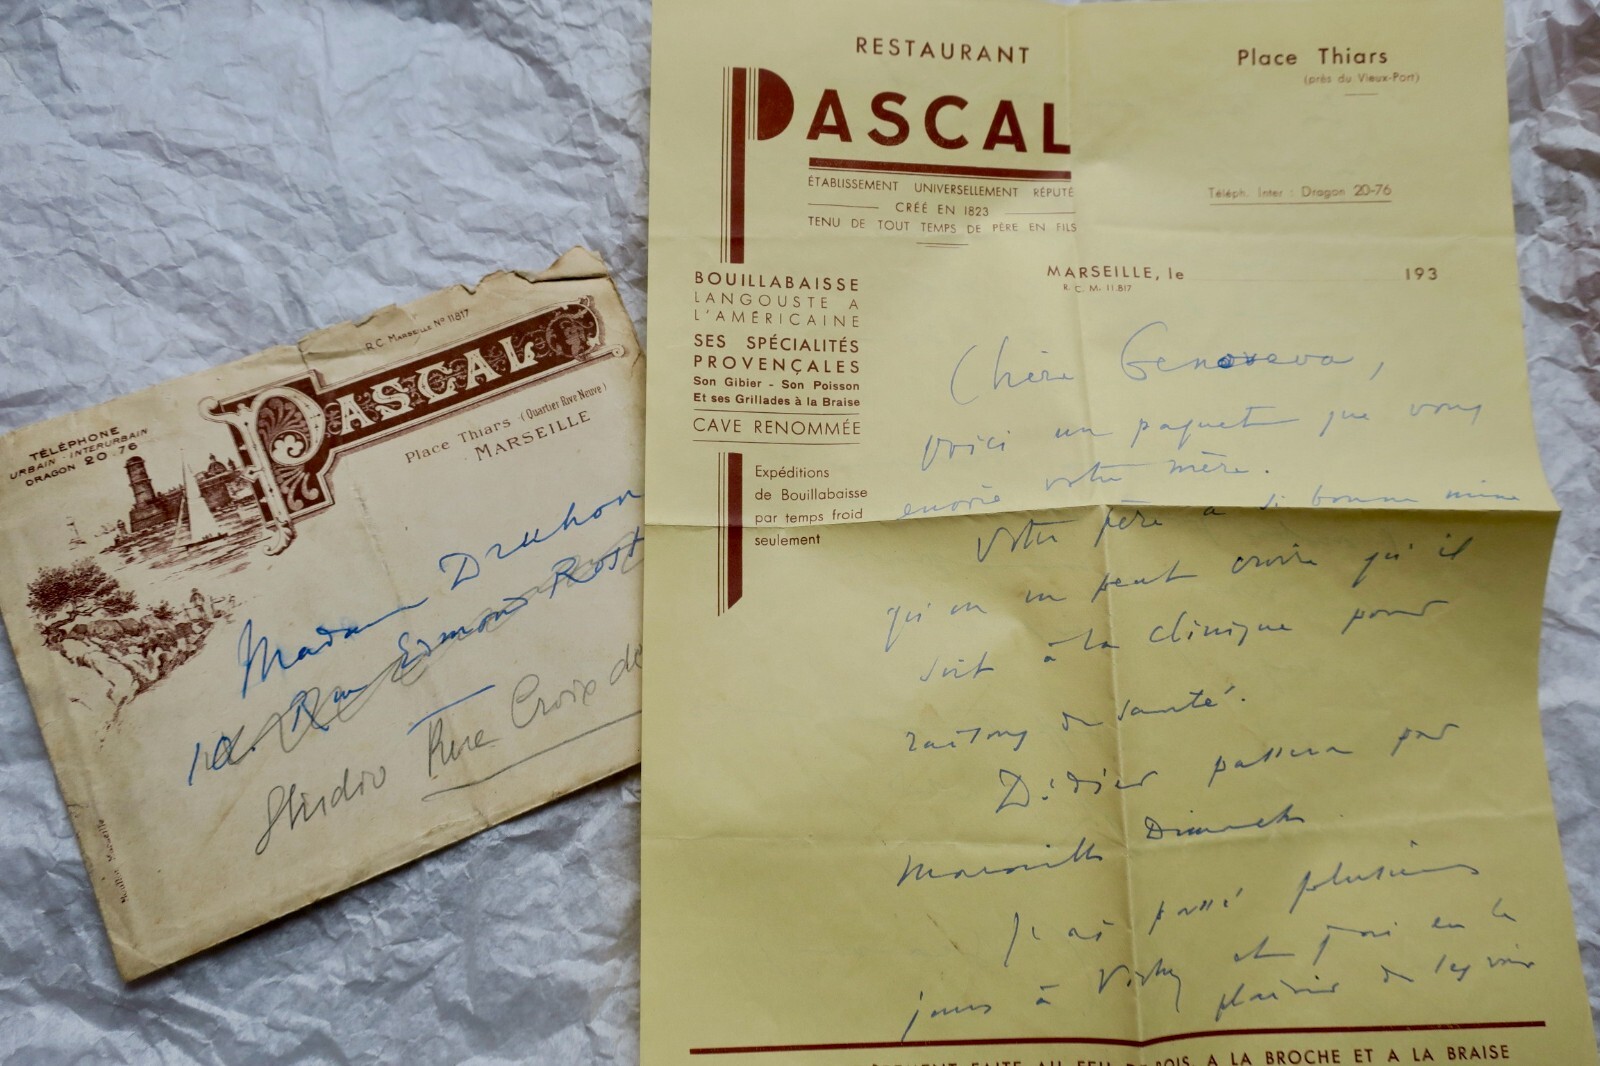 R.C. MARSEILLE Nº 11817
PASCAL
Place Thiars (Quartier Rive Neuve)
MARSEILLE
TÉLÉPHONE
URBAIN - INTERURBAIN
DRAGON 20.76
Madame Druhon
Rue Edmond Rost
Studio Rue Croix de
RESTAURANT
PASCAL
ÉTABLISSEMENT UNIVERSELLEMENT RÉPUTÉ
CRÉÉ EN 1823
TENU DE TOUT TEMPS DE PÈRE EN FILS
Place Thiars
(près du Vieux-Port)
Téléph. Inter : Dragon 20-76
MARSEILLE, le 193
R. C. M. 11.817
BOUILLABAISSE
LANGOUSTE A
L'AMÉRICAINE
SES SPÉCIALITÉS
PROVENÇALES
Son Gibier - Son Poisson
Et ses Grillades à la Braise
CAVE RENOMMÉE
Expéditions
de Bouillabaisse
par temps froid
seulement
Chère Genoveva,
Voici un paquet que vous
envoie votre mère.
Votre père a si bonne mine
qu'on ne peut croire qu'il
soit à la clinique pour
raisons de santé.
Didier passera par
Marseille Dimanche
J'ai passé plusieurs
jours à Vichy et j'ai eu le
plaisir de les voir
FAITE AU FEU DE BOIS, A LA BROCHE ET A LA BRAISE